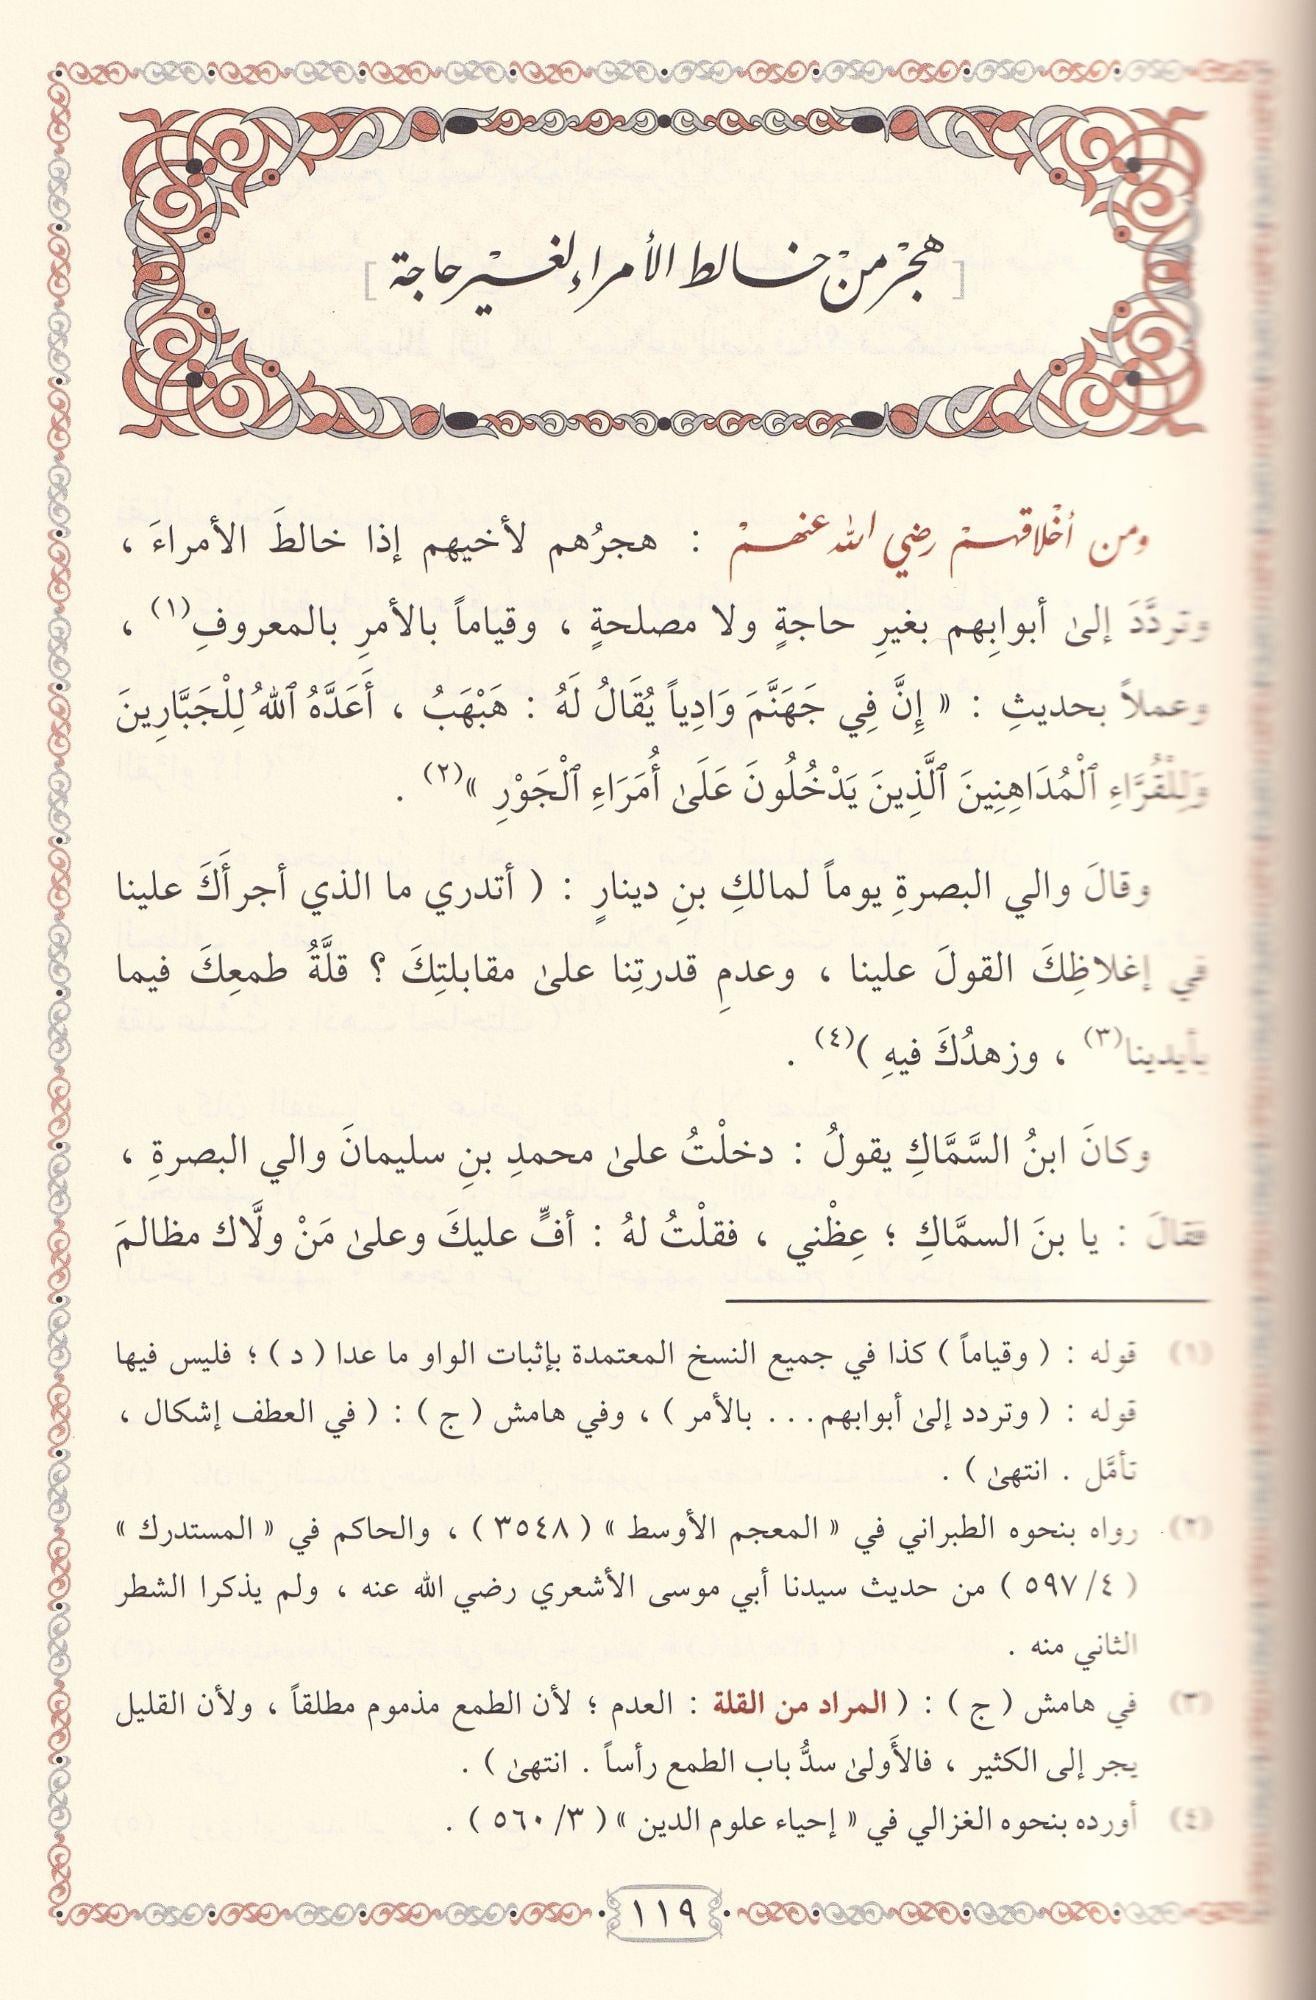 [ هجْر منْ خالط الأمراء لغيْر حاجة ]
ومن أخْلاقهمْ رضي الله عنهمْ : هجرُهم لأخيهم إذا خالطَ الأمراءَ ،
وتردَّدَ إلىٰ أبوابِهم بغيرِ حاجةٍ ولا مصلحةٍ ، وقياماً بالأمرِ بالمعروفِ(١) ،
وعملاً بحديثِ : « إِنَّ فِي جَهَنَّمَ وَادِياً يُقَالُ لَهُ : هَبْهَبُ ، أَعَدَّهُ ٱللهُ لِلْجَبَّارِينَ
وَلِلْقُرَّاءِ ٱلْمُدَاهِنِينَ ٱلَّذِينَ يَدْخُلُونَ عَلَىٰ أُمَرَاءِ ٱلْجَوْرِ »(٢) .
وقالَ والي البصرةِ يوماً لمالكِ بنِ دينارٍ : ( أتدري ما الذي أجرأَكَ علينا
في إغلاظِكَ القولَ علينا ، وعدمِ قدرتِنا علىٰ مقابلتِكَ ؟ قلَّةُ طمعِكَ فيما
بأيدينا(٣) ، وزهدُكَ فيهِ )(٤) .
وكانَ ابنُ السَّمَّاكِ يقولُ : دخلْتُ علىٰ محمدِ بنِ سليمانَ والي البصرةِ ،
فقالَ : يا بنَ السمَّاكِ ؛ عِظْني ، فقلْتُ لهُ : أفٍّ عليكَ وعلىٰ مَنْ ولَّاك مظالمَ
(١) قوله : ( وقياماً ) كذا في جميع النسخ المعتمدة بإثبات الواو ما عدا ( د ) ؛ فليس فيها
قوله : ( وتردد إلىٰ أبوابهم... بالأمر ) ، وفي هامش ( ج ) : ( في العطف إشكال ،
تأمَّل . انتهىٰ ) .
(٢) رواه بنحوه الطبراني في « المعجم الأوسط » ( ٣٥٤٨ ) ، والحاكم في « المستدرك »
( ٤/ ٥٩٧ ) من حديث سيدنا أبي موسى الأشعري رضي الله عنه ، ولم يذكرا الشطر
الثاني منه .
(٣) في هامش ( ج ) : ( المراد من القلة : العدم ؛ لأن الطمع مذموم مطلقاً ، ولأن القليل
يجر إلى الكثير ، فالأَولىٰ سدُّ باب الطمع رأساً . انتهىٰ ) .
(٤) أورده بنحوه الغزالي في « إحياء علوم الدين » ( ٣/ ٥٦٠ ) .
١١٩